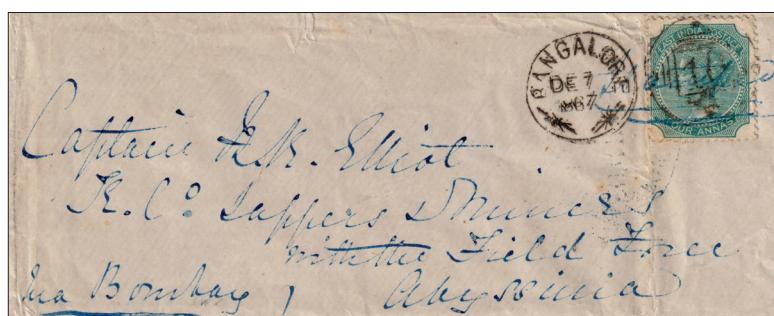 BANGALORE
DE 7
67
EAST INDIA POSTAGE
FOUR ANNAS
Captain H.K. Elliot
K. Co. Sappers & Miners
with the Field Force
Via Bombay Abyssinia